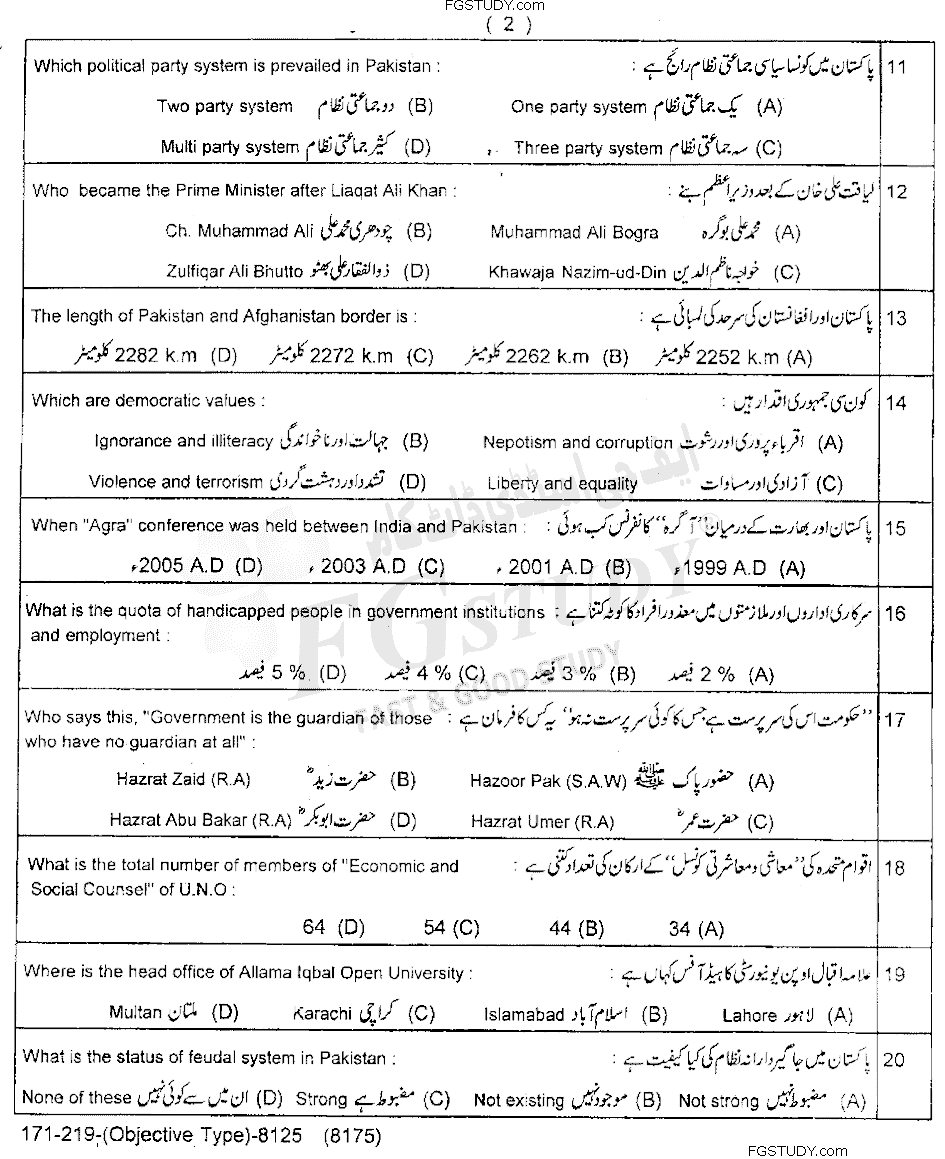 FGSTUDY.com
( 2 )
Which political party system is prevailed in Pakistan : پاکستان میں کونسا سیاسی جماعتی نظام رائج ہے : 11
Two party system دو جماعتی نظام (B) One party system یک جماعتی نظام (A)
Multi party system کثیر جماعتی نظام (D) Three party system سہ جماعتی نظام (C)
Who became the Prime Minister after Liaqat Ali Khan : لیاقت علی خان کے بعد وزیر اعظم بنے : 12
Ch. Muhammad Ali چودھری محمد علی (B) Muhammad Ali Bogra محمد علی بوگرہ (A)
Zulfiqar Ali Bhutto ذوالفقار علی بھٹو (D) Khawaja Nazim-ud-Din خواجہ ناظم الدین (C)
The length of Pakistan and Afghanistan border is : پاکستان اور افغانستان کی سرحد کی لمبائی ہے : 13
2282 k.m کلومیٹر (D) 2272 k.m کلومیٹر (C) 2262 k.m کلومیٹر (B) 2252 k.m کلومیٹر (A)
Which are democratic values : کون سی جمہوری اقدار ہیں : 14
Ignorance and illiteracy جہالت اور ناخواندگی (B) Nepotism and corruption اقرباء پروری اور رشوت (A)
Violence and terrorism تشدد اور دہشت گردی (D) Liberty and equality آزادی اور مساوات (C)
When "Agra" conference was held between India and Pakistan : پاکستان اور بھارت کے درمیان "آگرہ" کانفرنس کب ہوئی : 15
2005 A.D ء (D) 2003 A.D ء (C) 2001 A.D ء (B) 1999 A.D ء (A)
What is the quota of handicapped people in government institutions : سرکاری اداروں اور ملازمتوں میں معذور افراد کا کوٹہ کتنا ہے : 16
and employment :
5 % فیصد (D) 4 % فیصد (C) 3 % فیصد (B) 2 % فیصد (A)
Who says this, "Government is the guardian of those "حکومت اس کی سرپرست ہے جس کا کوئی سرپرست نہ ہو" یہ کس کا فرمان ہے : 17
who have no guardian at all" :
Hazrat Zaid (R.A) حضرت زیدؓ (B) Hazoor Pak (S.A.W) حضور پاک ﷺ (A)
Hazrat Abu Bakar (R.A) حضرت ابوبکرؓ (D) Hazrat Umer (R.A) حضرت عمرؓ (C)
What is the total number of members of "Economic and اقوام متحدہ کی "معاشی و معاشرتی کونسل" کے ارکان کی تعداد کتنی ہے : 18
Social Counsel" of U.N.O :
64 (D) 54 (C) 44 (B) 34 (A)
Where is the head office of Allama Iqbal Open University : علامہ اقبال اوپن یونیورسٹی کا ہیڈ آفس کہاں ہے : 19
Multan ملتان (D) Karachi کراچی (C) Islamabad اسلام آباد (B) Lahore لاہور (A)
What is the status of feudal system in Pakistan : پاکستان میں جاگیردارانہ نظام کی کیا کیفیت ہے : 20
None of these ان میں سے کوئی نہیں (D) Strong مضبوط ہے (C) Not existing موجود نہیں (B) Not strong مضبوط نہیں (A)
171-219-(Objective Type)-8125 (8175)
FGSTUDY.com
ایف جی اسٹڈی ڈاٹ کام
FGSTUDY
FAST & GOOD STUDY